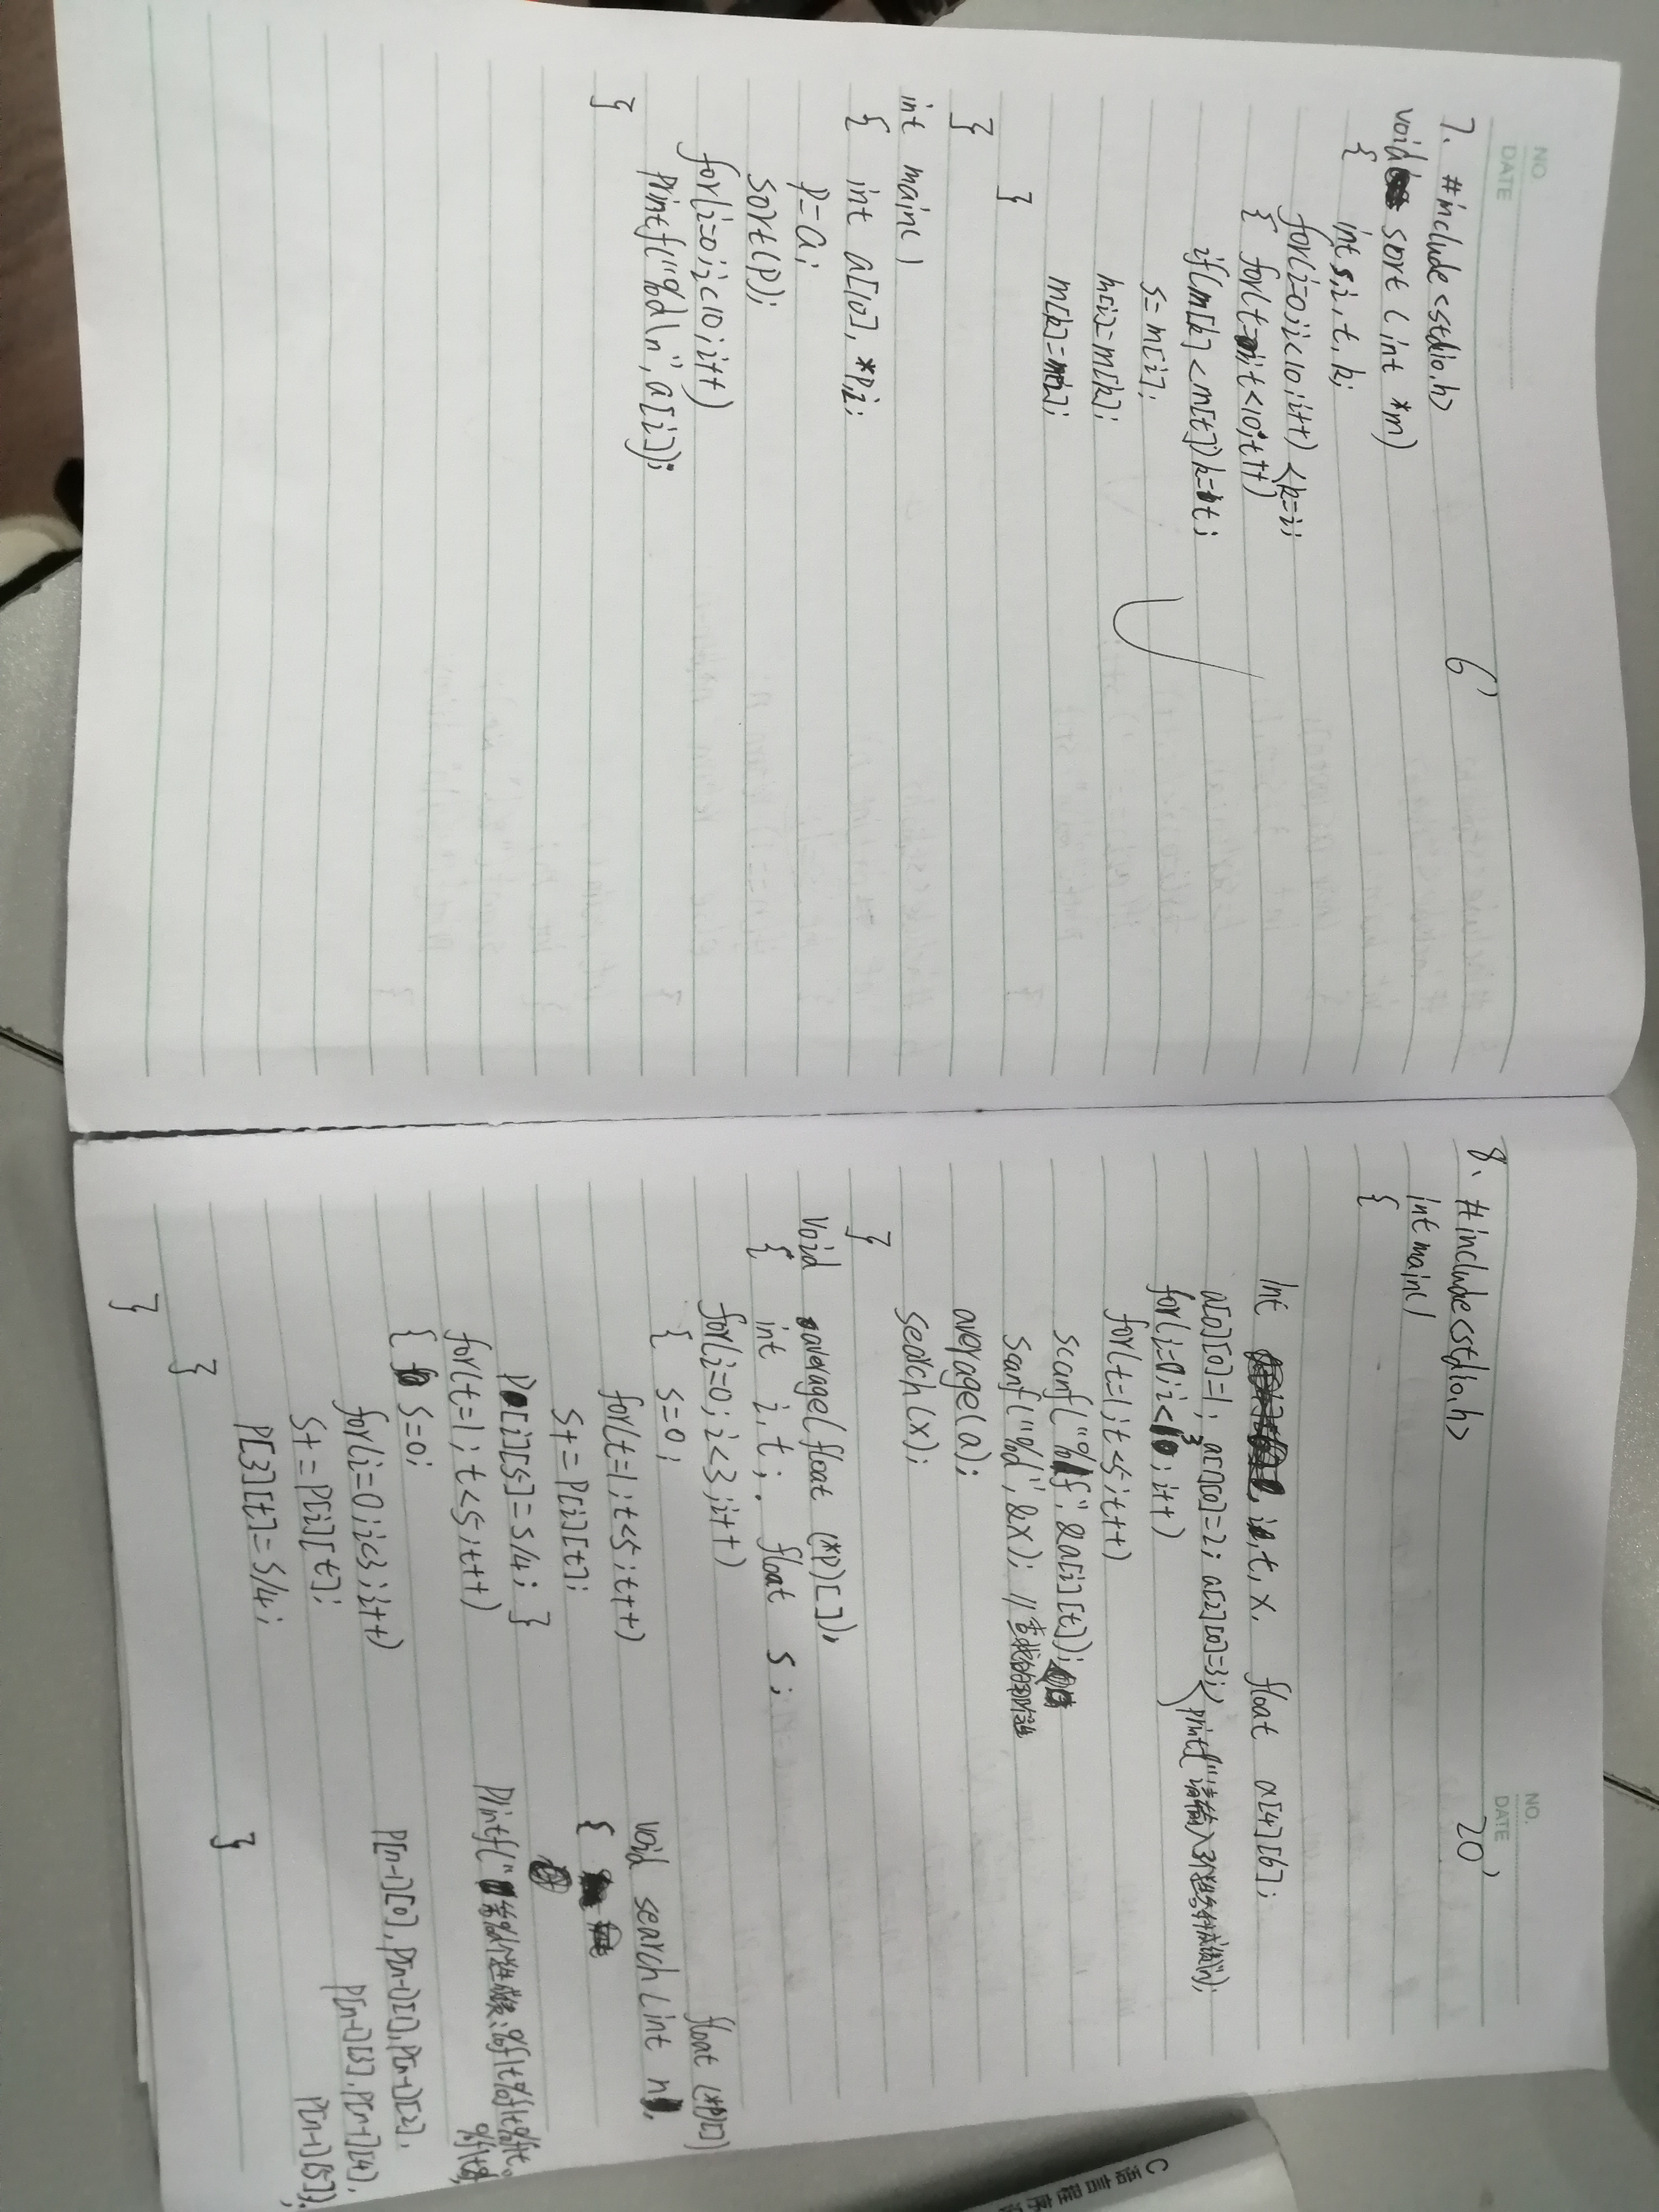 NO.
DATE
6'
7. #include<stdio.h>
void sort(int *m)
{
int s,i,t,k;
for(i=0;i<10;i++) <k=i;
{ for(t=i;t<10;t++)
if(m[k]<m[t])k=t;
s=m[i];
m[i]=m[k];
m[k]=m[i];
}
}
int main()
{ int a[10],*p,i;
p=a;
sort(p);
for(i=0;i<10;i++)
printf("%d\n",a[i]);
}
NO.
DATE
20'
8. #include<stdio.h>
int main()
{
int i,t,x. float a[4][6];
a[0][0]=1; a[1][0]=2; a[2][0]=3;
for(i=0;i<3;i++)
for(t=1;t<5;t++)
scanf("%f",&a[i][t]);
sanf("%d",&x); //
average(a);
search(x);
}
void average(float (*p)[]),
{ int i,t; float s;
for(i=0;i<3;i++)
{ s=0;
for(t=1;t<5;t++)
s+=p[i][t];
p[i][5]=s/4; }
for(t=1;t<5;t++)
{ s=0;
for(i=0;i<3;i++)
s+=p[i][t];
p[3][t]=s/4;
}
}
float (*p)[])
void search(int n,
{
p[n-1][0],p[n-1][1],p[n-1][2],
p[n-1][3],p[n-1][4],
p[n-1][5]);
}
C语言程序